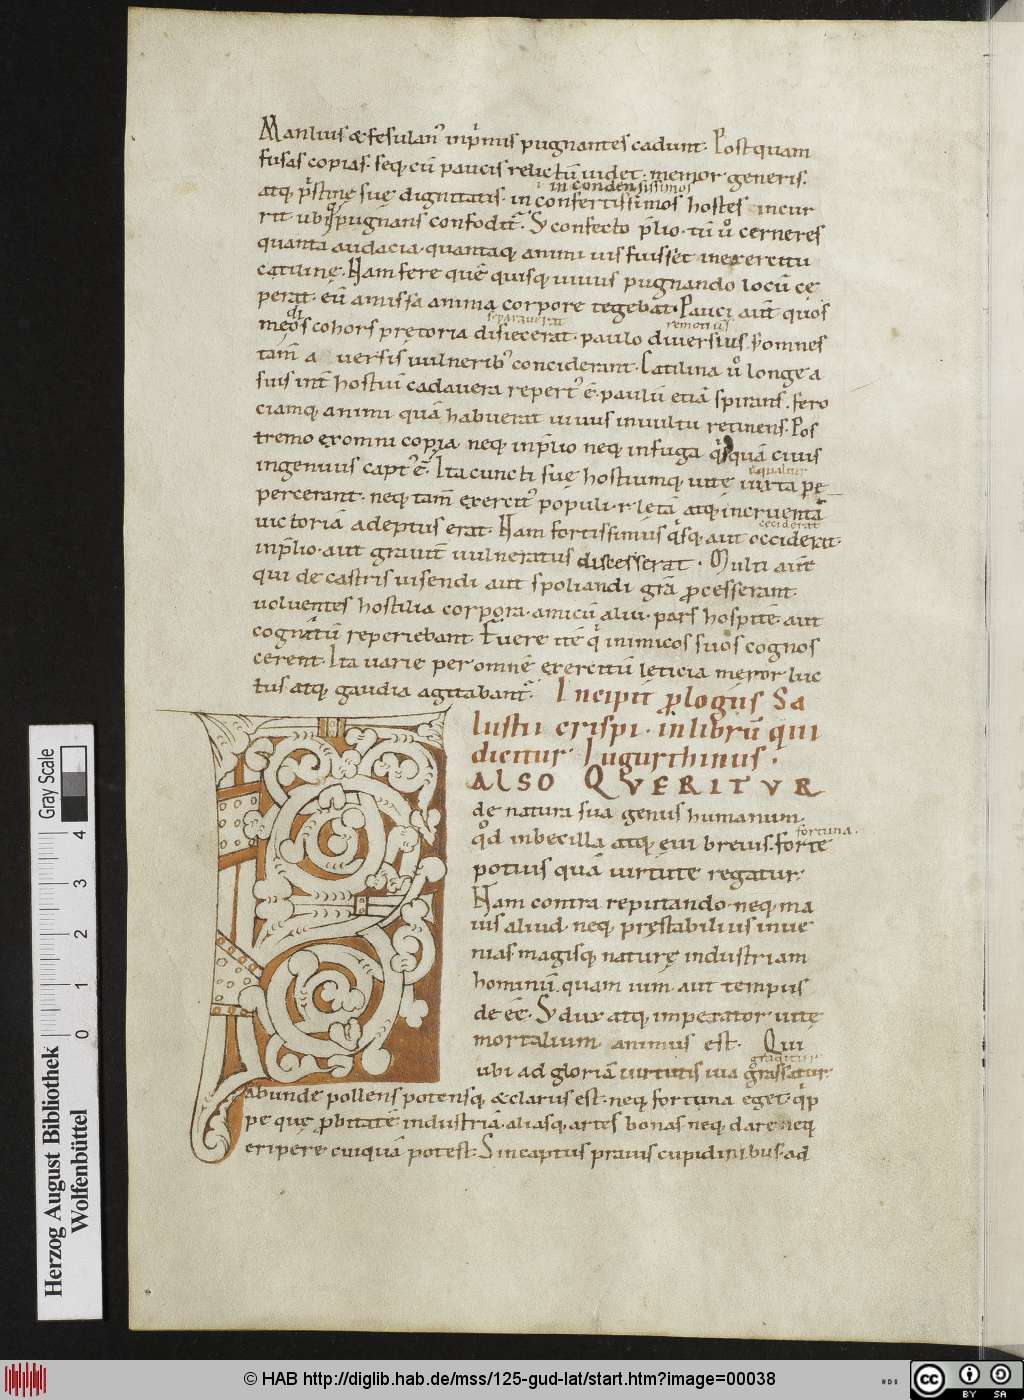 Manlius & fesulan᾿ inp̾mis pugnantes cadunt. Postquam
fusas copias. seq; cū paucis relictū uidet. memor generis.
atq; p̾stinę suę dignitatis. in confertissimos hostes incur
in condensissimos
rit ubiq; pugnans confodit᾿. S; confecto p̄lio. tū u̾ cerneres
quanta audacia. quantaq; animi uis fuisset in exercitu
catilinę. Nam fere quē quisq; uiuus pugnando locū ce
perat. eū amissa anima corpore tegebat. Pauci aut̄ quos
medios cohors pretoria disiecerat. paulo diuersius. s; omnes
separauerat remotius
tam̄ a uersis uulnerib᾿ conciderant. Catilina u̾ longe a
suis int̄ hostiū cadauera repert᾿ ē. paulū etiā spirans. fero
ciamq; animi quā habuerat uiuus in uultu retinens. Pos
tremo ex omni copia neq; in p̄lio neq; in fuga q̾squā ciuis
ingenuus capt᾿ ē. Ita cuncti suę hostiumq; uitę iuxta pe
equaliter
percerant. neq; tam̄ exercit᾿ populi. r. letā atq; incruentā
uictoriā adeptus erat. Nam fortissimus q̾sq; aut occiderat.
ceciderat
in p̄lio. aut grauit̄ uulneratus discesserat. Multi aut̄
qui de castris uisendi aut spoliandi grā pcesserant.
uoluentes hostilia corpora. amicū alii. pars hospitē. aut
cognatū reperiebant. Fuere itē q̾ inimicos suos cognos
cerent. Ita uarie per omnē exercitū leticia meror luc
tus atq; gaudia agitabant᾿. Incipit plogus Sa
lustii crispi. in librū qui
dicitur Iugurthinus.
F ALSO QVERITVR
de natura sua genus humanum
q̾d inbecilla atq; eui breuis. forte
fortuna.
potius quā uirtute regatur.
Nam contra reputando. neq; ma
ius aliud. neq; pręstabilius inue
nias. magisq; naturę industriam
hominū quam uim aut tempus
de eē. S; dux atq; imperator uitę
mortalium animus est. Qui
ubi ad gloriā uirtutis uia grassatur
graditur
abunde pollens potensq; & clarus est. neq; fortuna eget. q̾p
pe quę pbitatē industriā. aliasq; artes bonas neq; dare neq;
eripere cuiquā potest. Sin captus prauis cupidinibus. ad
Gray Scale
0 1 2 3 4
Herzog August Bibliothek
Wolfenbüttel
© HAB http://diglib.hab.de/mss/125-gud-lat/start.htm?image=00038
cc BY SA